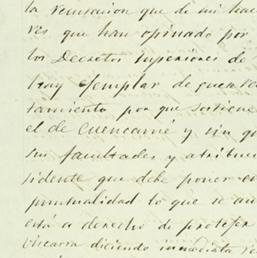 la recusacion que de mi hac
res que han opinado por
los Decretos superiores de
hay ejemplar de que
tamiento por que sostiene
el de Cuencamé y sin qu
sus facultades y atribuci
sidente que debe poner en
puntualidad lo que se
está a derecho de proteger
Viscarra diciendo inmediata